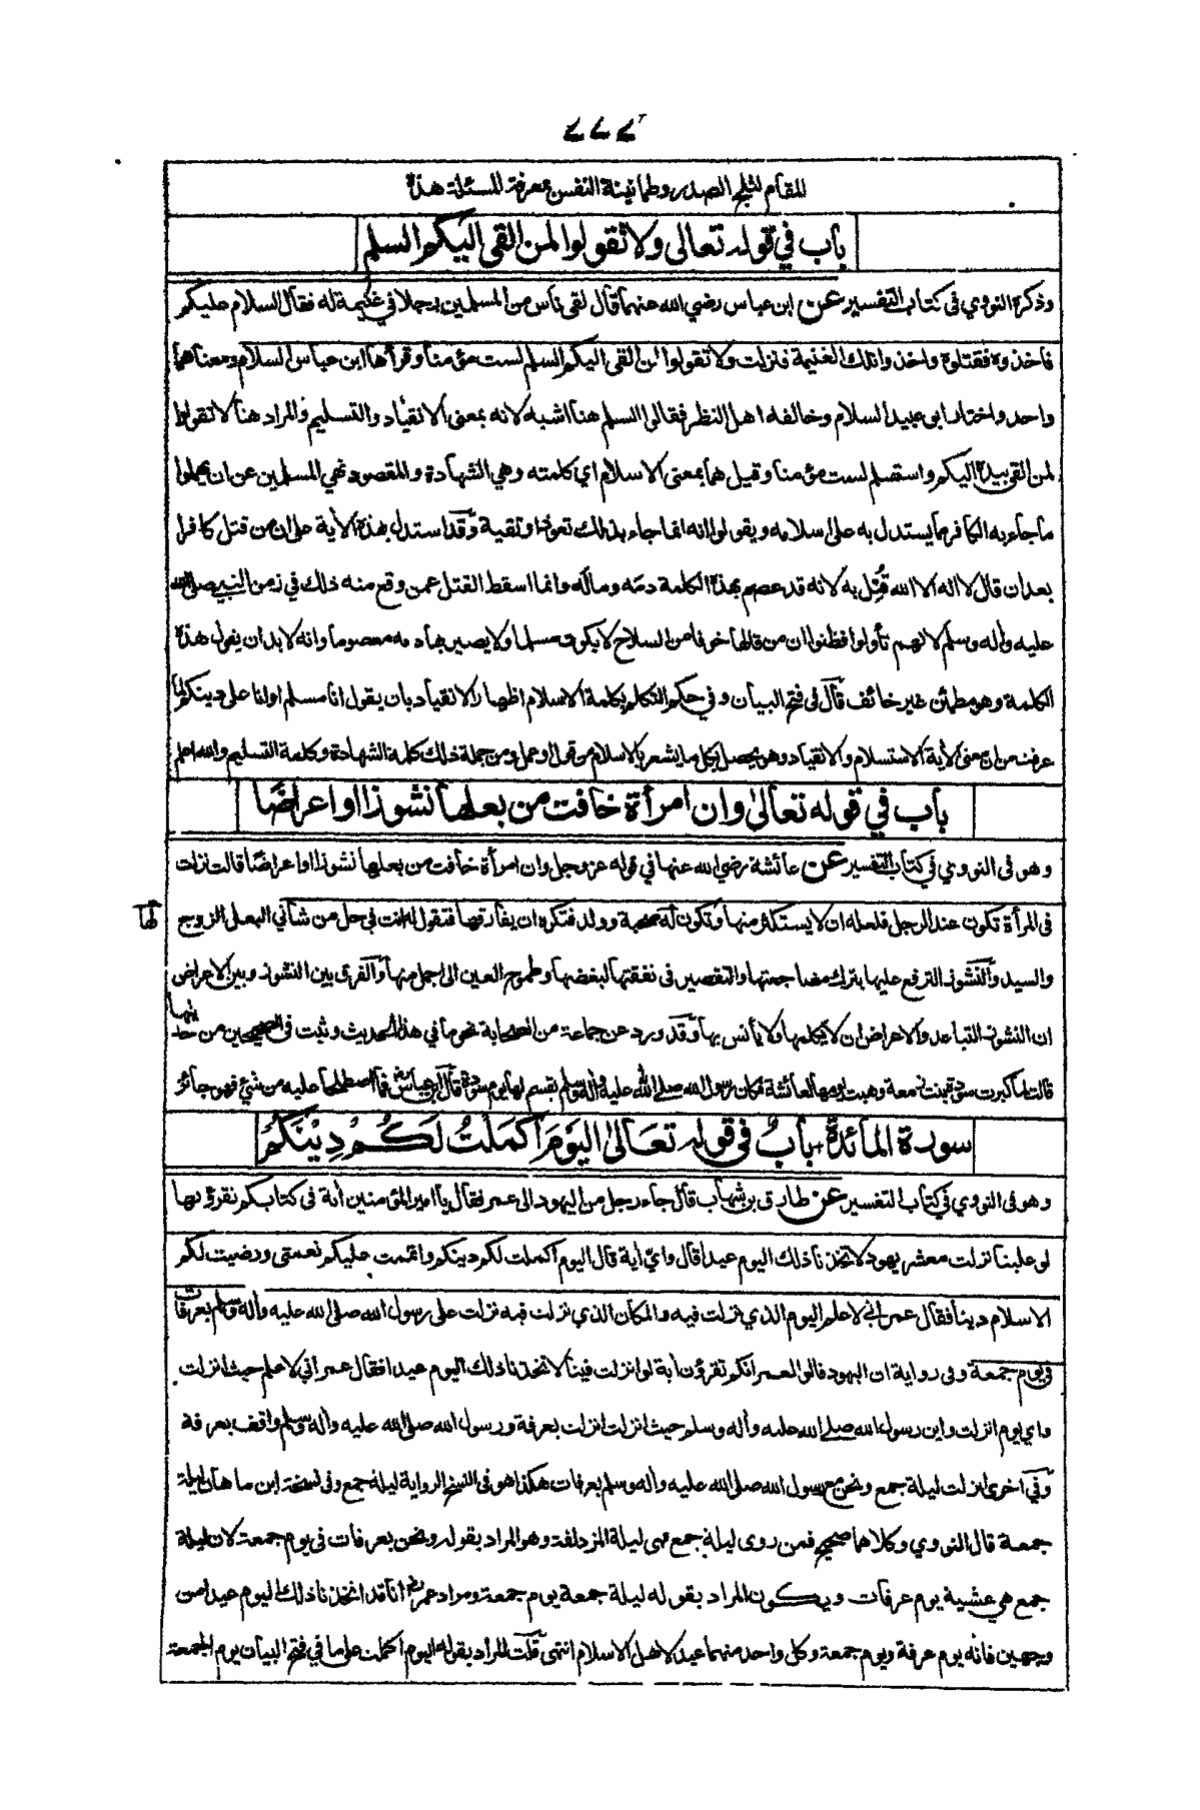 المقام لثلج الصدر وطمانينة النفس بمعرفة المسئلة هذه
باب في قوله تعالى ولا تقولوا لمن القى اليكم السلم
وذكره النووي فى كتاب التفسير عن ابن عباس رضي الله عنهما قال لقى ناس من المسلمين رجلا في غنيمة له فقال السلام عليكم
فاخذوه فقتلوه واخذوا تلك الغنيمة فنزلت ولا تقولوا لمن القى اليكم السلم لست مؤمنا وقرأها ابن عباس السلام ومعناهما
واحد واختار ابو عبيد السلام وخالفه اهل النظر فقالوا السلم هنا اشبه لانه بمعنى الانقياد والتسليم والمراد هنا لا تقولوا
لمن القى بيده اليكم واستسلم لست مؤمنا وقيل هما بمعنى الاسلام اي كلمته وهي الشهادة والمقصود نهي المسلمين عن ان يهملوا
ما جاء به الكافر مما يستدل به على اسلامه ويقولوا انه انما جاء بذلك تعوذا وتقية وقد استدل بهذه الآية على ان من قتل كافرا
بعد ان قال لا اله الا الله قُتِل به لانه قد عصم بهذه الكلمة دمه وماله وانما اسقط القتل عمن وقع منه ذلك في زمن النبي صلى الله
عليه واله وسلم لانهم تأولوا فظنوا ان من قالها خوفا من السلاح لا يكون مسلما ولا يصير بها دمه معصوما وانه لا بد ان يقول هذه
الكلمة وهو مطمئن غير خائف قال فى فتح البيان وفي حكم التكلم بكلمة الاسلام اظهار الانقياد بان يقول انا مسلم او انا على دينكم لما
عرفت من ان معنى الآية الاستسلام والانقياد وهو يحصل بكل ما يشعر بالاسلام من قول او عمل ومن جملة ذلك كلمة الشهادة وكلمة التسليم والله اعلم
باب في قوله تعالىٰ وان امرأة خافت من بعلها نشوزا او اعراضًا
وهو فى النووي في كتاب التفسير عن عائشة رضي الله عنها في قوله عز وجل وان امرأة خافت من بعلها نشوزا او اعراضًا قالت نزلت
فى المرأة تكون عند الرجل فلعله ان لا يستكثر منها وتكون لها صحبة وولد فتكره ان يفارقها فتقول له انت فى حل من شأني البعل الزوج
والسيد والنشوز الترفع عليها بترك مضاجعتها والتقصير فى نفقتها لبغضها وطموح العين الى اجمل منها والفرق بين النشوز وبين الاعراض
ان النشوز التباعد والاعراض ان لا يكلمها ولا يأنس بها وقد ورد عن جماعة من الصحابة نحو ما في هذا الحديث وثبت فى الصحيحين من حديثها
قالت لما كبرت سودة بنت زمعة وهبت يومها لعائشة فكان رسول الله صلى الله عليه واله وسلم يقسم لها يوم سودة قال ابن عباس فما اصطلحا عليه من شيء فهو جائز
سورة المائدة باب فى قوله تعالىٰ اليوم اكملت لكم دينكم
وهو فى النووي في كتاب التفسير عن طارق بن شهاب قال جاء رجل من اليهود الى عمر فقال يا امير المؤمنين اية فى كتابكم تقرؤنها
لو علينا نزلت معشر يهود لاتخذنا ذلك اليوم عيدا قال واي اية قال اليوم اكملت لكم دينكم واتممت عليكم نعمتي ورضيت لكم
الاسلام دينا فقال عمر اني لاعلم اليوم الذي نزلت فيه والمكان الذي نزلت فيه نزلت على رسول الله صلى الله عليه واله وسلم بعرفات
في يوم جمعة وفى رواية ان اليهود قالوا لعمر انكم تقرؤن اية لو انزلت فينا لاتخذنا ذلك اليوم عيدا فقال عمر اني لاعلم حيث انزلت
واي يوم انزلت واين رسول الله صلى الله عليه واله وسلم حيث انزلت انزلت بعرفة ورسول الله صلى الله عليه واله وسلم واقف بعرفة
وفي اخرى نزلت ليلة جمع ونحن مع رسول الله صلى الله عليه واله وسلم بعرفات هكذا هو فى النسخ الرواية ليلة جمع وفى نسخة ابن ماهان ليلة
جمعة قال النووي وكلاهما صحيح فمن روى ليلة جمع هى ليلة المزدلفة وهو المراد بقوله ونحن بعرفات فى يوم جمعة لان ليلة
جمع هي عشية يوم عرفات ويكون المراد بقوله ليلة جمعة يوم جمعة ومراد عمر انا قد اتخذنا ذلك اليوم عيدا من
وجهين فانه يوم عرفة ويوم جمعة وكل واحد منهما عيد لاهل الاسلام انتهى قلت المراد بقوله اليوم اكملت على ما في فتح البيان يوم الجمعة